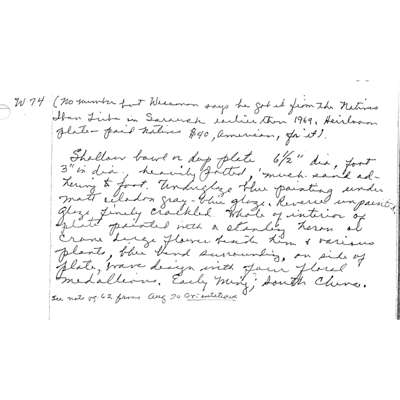 W 74 (No number but Wiseman says he got it from the Natives
Iban Tribe in Sarawak earlier than 1969. Heirloom
plate - paid natives $40, American, for it).
Shallow bowl or deep plate 6½" dia, foot
3" in dia. heavily potted, much sand ad-
hering to foot. Underglaze blue painting under
matt celadon gray-blue glaze. Reverse unpainted,
glaze finely crackled. Whole of interior of
plate painted with a standing heron or
crane large flower beneath him & various
plants, blue band surrounding, on side of
plate, wave design with four floral
medallions. Early Ming, South China.
See note pg 62 from Aug 70 Orientations